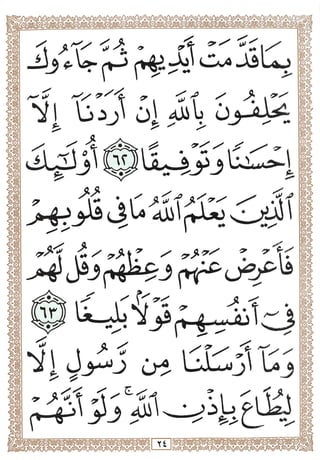 بِمَا قَدَّمَتْ أَيْدِيهِمْ ثُمَّ جَآءُوكَ
يَحْلِفُونَ بِٱللَّهِ إِنْ أَرَدْنَآ إِلَّآ
إِحْسَٰنًا وَتَوْفِيقًا ٦٢ أُوْلَٰٓئِكَ
ٱلَّذِينَ يَعْلَمُ ٱللَّهُ مَا فِى قُلُوبِهِمْ
فَأَعْرِضْ عَنْهُمْ وَعِظْهُمْ وَقُل لَّهُمْ
فِىٓ أَنفُسِهِمْ قَوْلًۢا بَلِيغًا ٦٣
وَمَآ أَرْسَلْنَا مِن رَّسُولٍ إِلَّا
لِيُطَاعَ بِإِذْنِ ٱللَّهِ ۚ وَلَوْ أَنَّهُمْ
٢٤